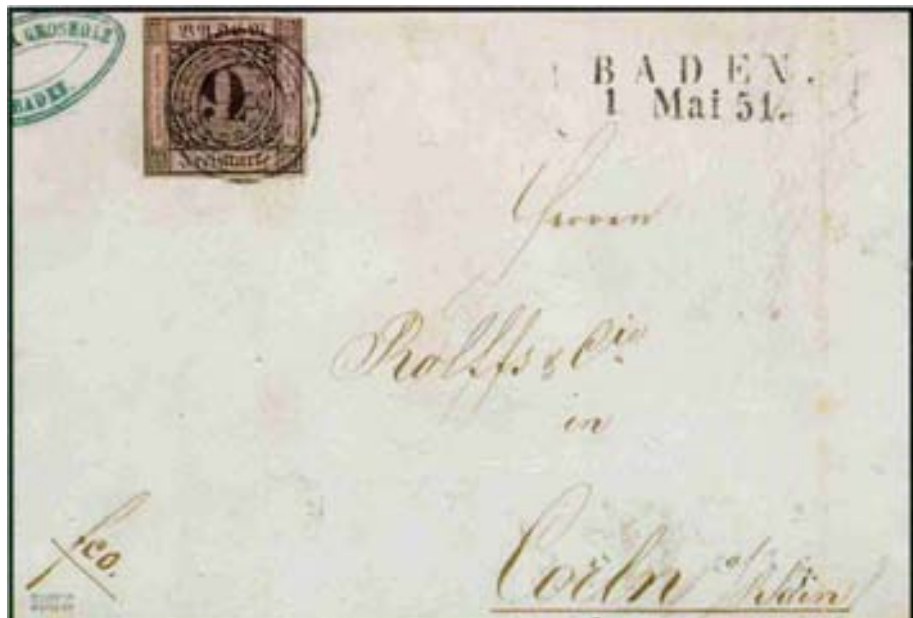 GROSHOLZ
BADEN.
BADEN
9
Freimarke
BADEN.
1 Mai 51.
Herren
Rolffs & Cie
in
Coeln a/ Rhin
fco.